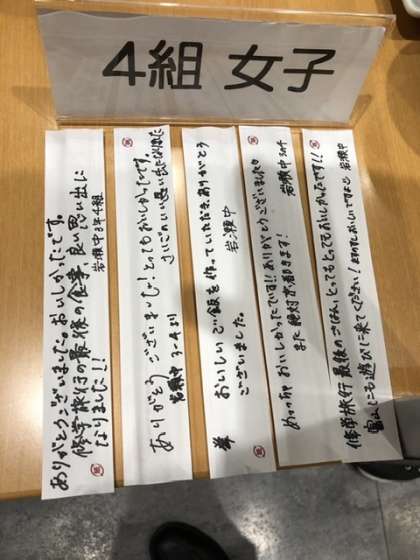 4組 女子
修学旅行 最後のごはん、とってもとってもおいしかったです!!
富山にも遊びに来てください! ますのすしおいしいですよ 岩瀬中
めっちゃおいしかったです!! ありがとうございました。
また絶対京都きます! 岩瀬中 3の4
おいしいご飯を作っていただき、ありがとう
ございました。 岩瀬中
ありがとうございました! とってもおいしかったです。
さいごのいい思い出になりました
岩瀬中 3-4より
ありがとうございました。おいしかったです。
修学旅行の最後の食事、良い思い出に
なりました!! 岩瀬中3年4組